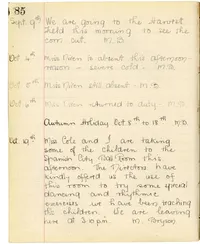 85
Sept. 9th We are going to the Harvest
field this morning to see the
corn cut. M.B.
Oct 4th Miss Dixon is absent this afternoon
severe cold - M.B.
Oct 5th Miss Dixon still absent - M.B.
Oct 6th Miss returned to duty - M.B.
Autumn Holiday Oct 8th to 18th M.B.
Oct. 19th Miss Cole and I are taking
some of the children to the
Spanish City Ball Room this
afternoon. The Directors have
kindly offered us the use of
this room to try some special
dancing and rhythmic
exercises we have been teaching
the children. We are leaving
here at 3.10 pm M. Bryson